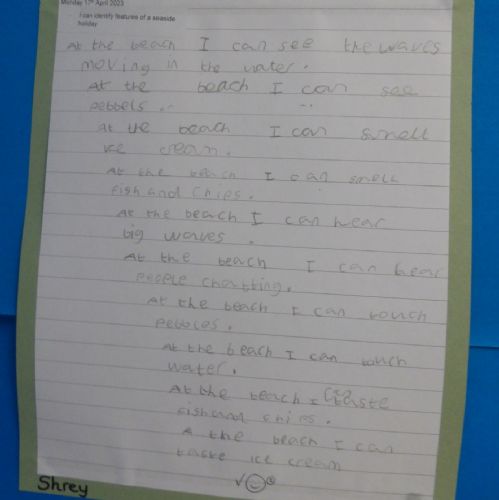 Monday 17th April 2023
I can identify features of a seaside
holiday
At the beach I can see the waves
moving in the water.
At the beach I can see
pebbels.
at the beach I can smell
ice cream.
At the beach I can smell
fish and chips.
At the beach I can hear
big waves.
At the beach I can hear
people chatting.
At the beach I can touch
pebbles.
At the beach I can touch
water.
At the beach I can taste
fish and chips.
A the beach I can
taste ice cream
Shrey